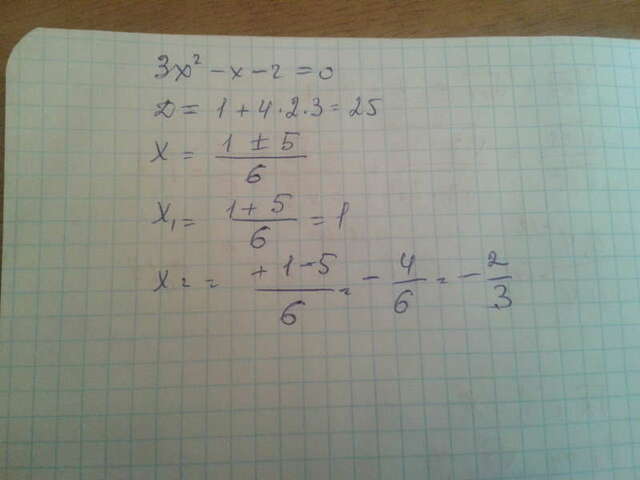 3x² - x - 2 = 0
D = 1 + 4 · 2 · 3 = 25
x = (1 ± 5)/6
x₁ = (1 + 5)/6 = 1
x₂ = (+ 1 - 5)/6 = - 4/6 = - 2/3